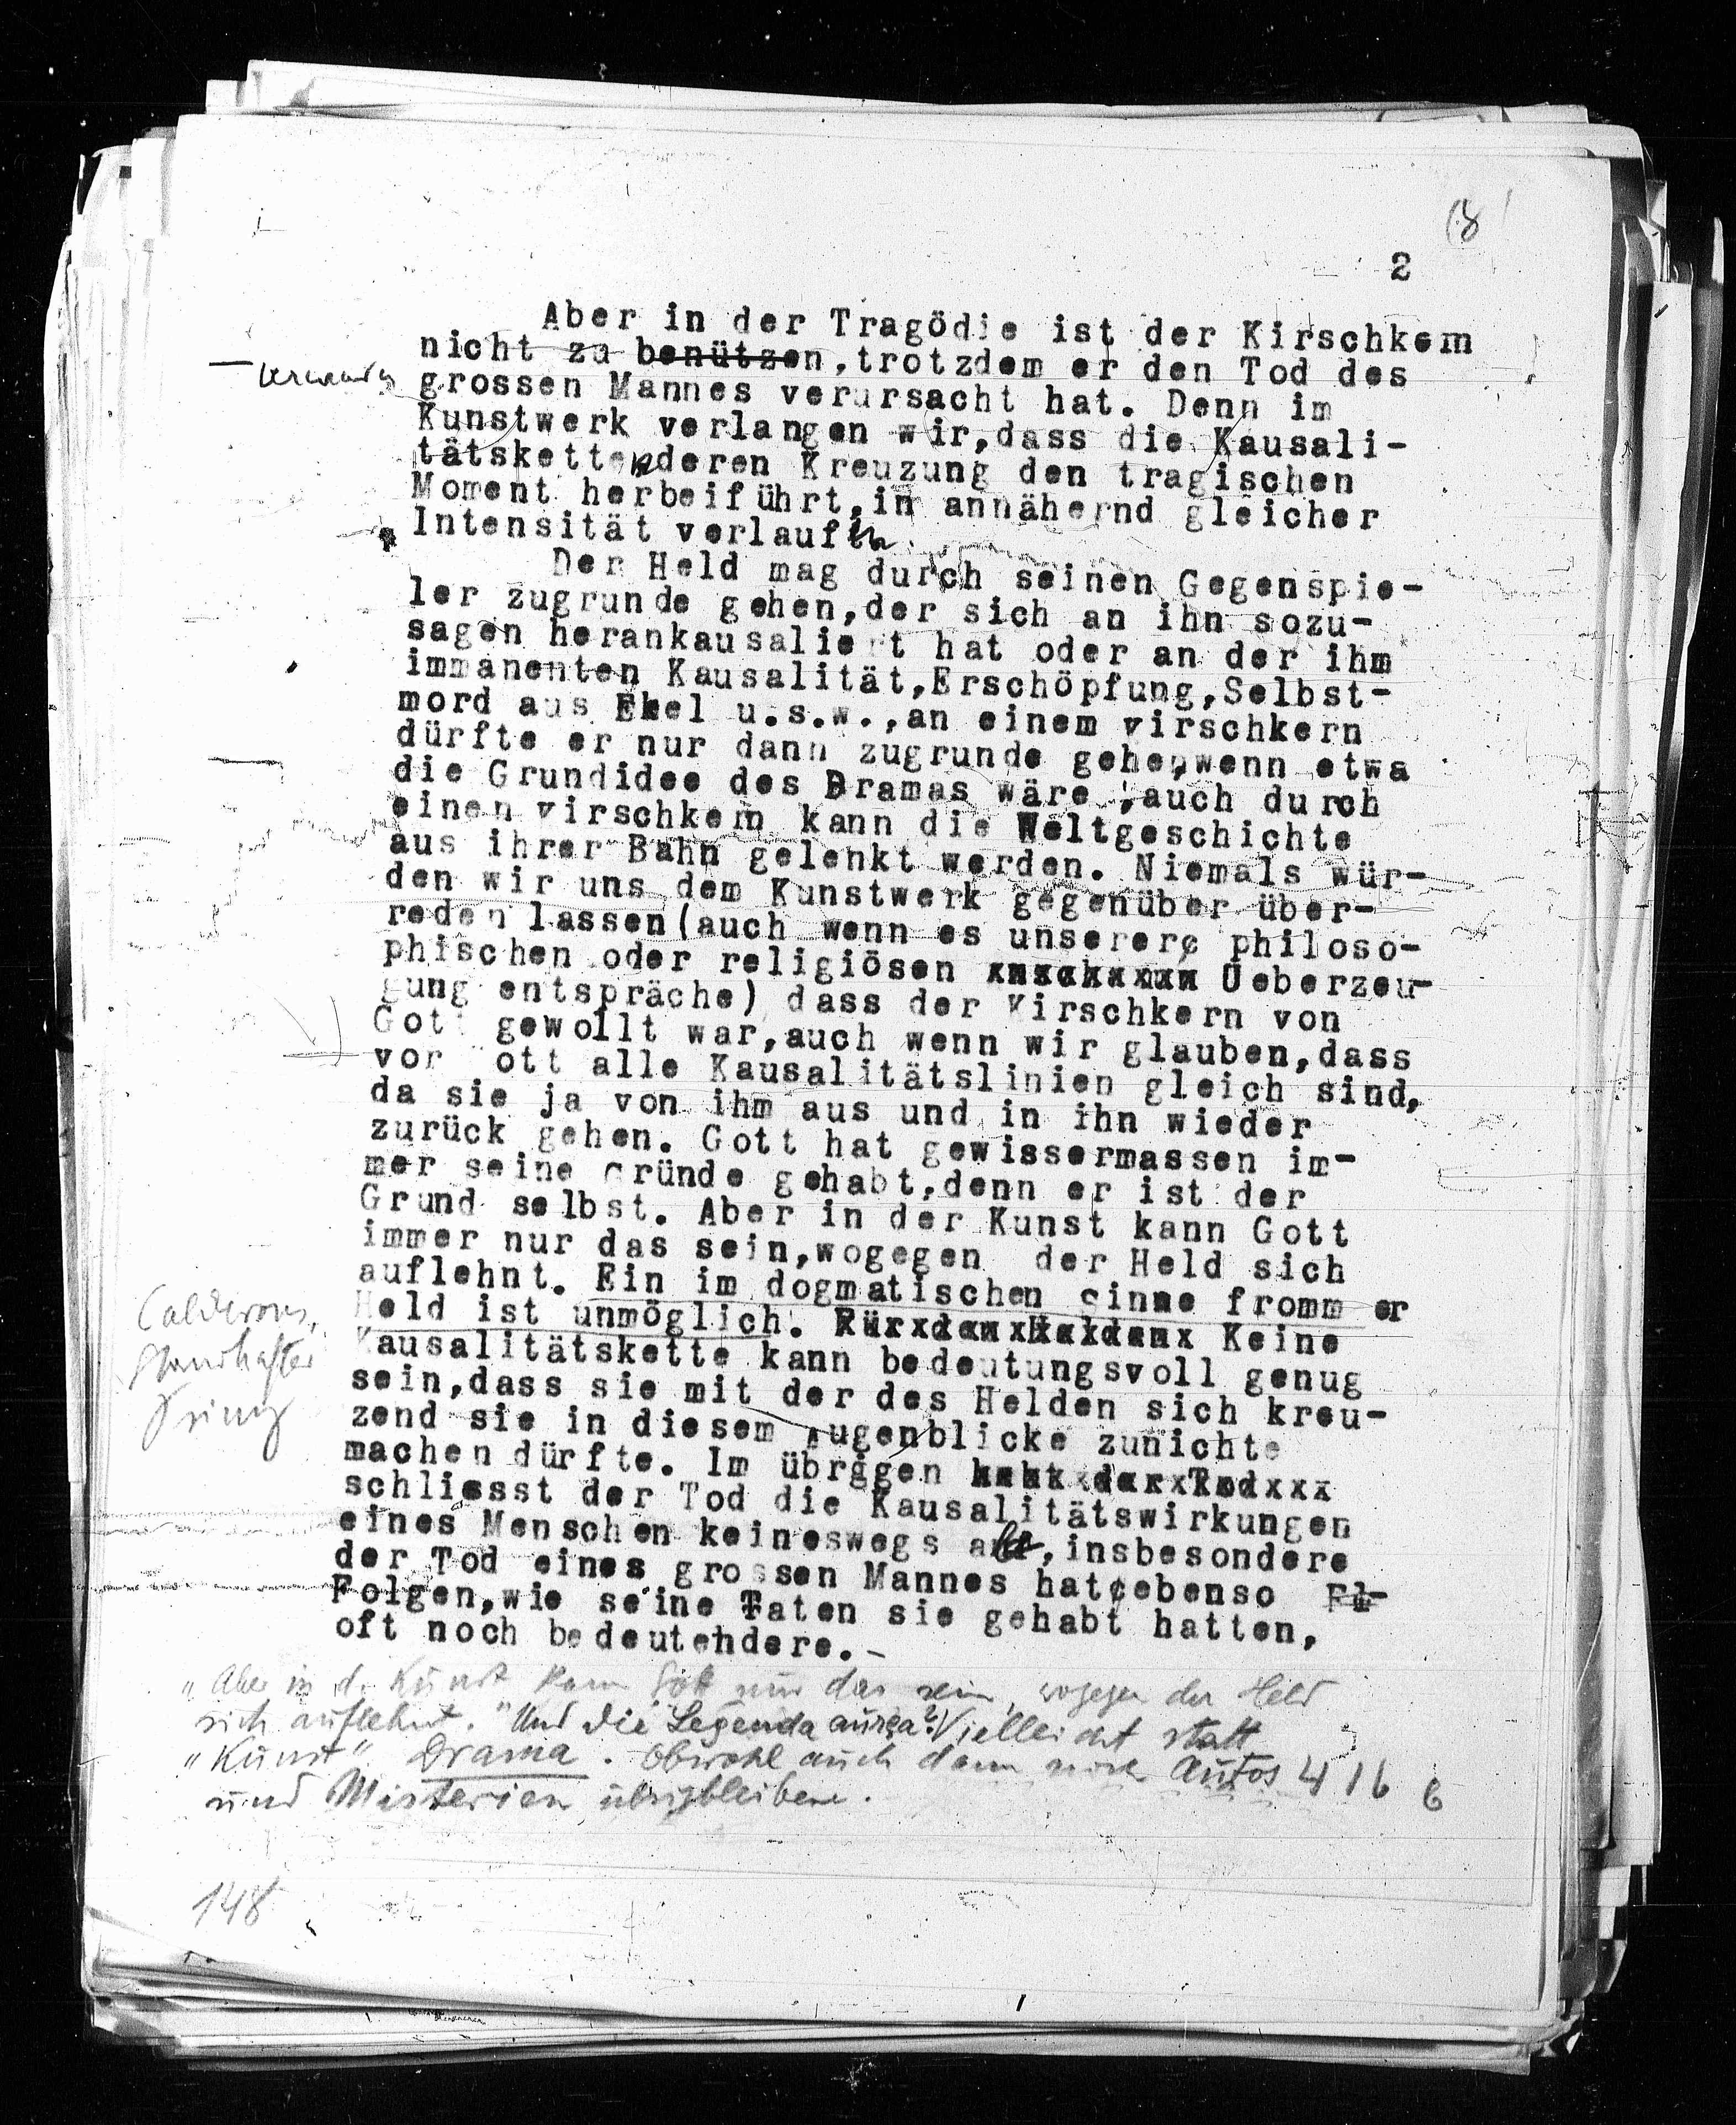 2
Aber in der Tragödie ist der Kirschkern
nicht zu benützen,trotzdem er den Tod des
grossen Mannes verursacht hat. Denn im
Kunstwerk verlangen wir,dass die Kausali-
tätsketten deren Kreuzung den tragischen
Moment herbeiführt,in annähernd gleicher
Intensität verlaufen.
Der Held mag durch seinen Gegenspie-
ler zugrunde gehen,der sich an ihn sozu-
sagen herankausaliert hat oder an der ihm
immanenten Kausalität,Erschöpfung,Selbst-
mord aus Ekel u.s.w.,an einem virschkern
dürfte er nur dann zugrunde gehen,wenn etwa
die Grundidee des Dramas wäre :auch durch
einen virschkern kann die Weltgeschichte
aus ihrer Bahn gelenkt werden. Niemals wür-
den wir uns dem Kunstwerk gegenüber über-
reden lassen(auch wenn es unserer philoso-
phischen oder religiösen Ueberzeu-
gung entspräche) dass der Kirschkern von
Gott gewollt war,auch wenn wir glauben,dass
vor ott alle Kausalitätslinien gleich sind,
da sie ja von ihm aus und in ihn wieder
zurück gehen. Gott hat gewissermassen im-
mer seine Gründe gehabt,denn er ist der
Grund selbst. Aber in der Kunst kann Gott
immer nur das sein,wogegen der Held sich
auflehnt. Ein im dogmatischen sinne frommer
Held ist unmöglich. Für den Helden Keine
Kausalitätskette kann bedeutungsvoll genug
sein,dass sie mit der des Helden sich kreu-
zend sie in diesem Augenblicke zunichte
machen dürfte. Im übrigen hat der Tod
schliesst der Tod die Kausalitätswirkungen
eines Menschen keineswegs ab,insbesondere
der Tod eines grossen Mannes hat ebenso
Folgen,wie seine Taten sie gehabt hatten,
oft noch bedeutendere.-
Calderons
standhafter
Prinz
„Aber in d. Kunst kann Gott nur das sein, wogegen der Held
sich auflehnt." Und die Legenda aurea? Vielleicht statt
„Kunst" Drama. Obwohl auch dann noch Autos
und Misterien übrigbleiben.
4 16 6
148